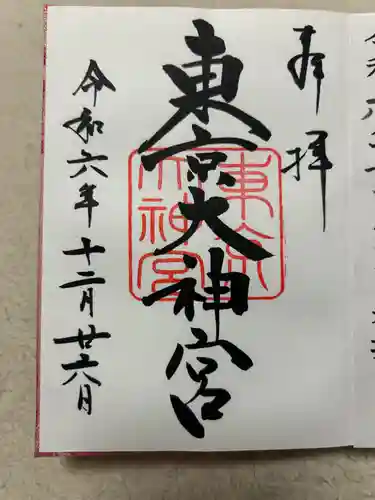 奉拝
東京大神宮
東京大神宮
令和六年十二月廿六日